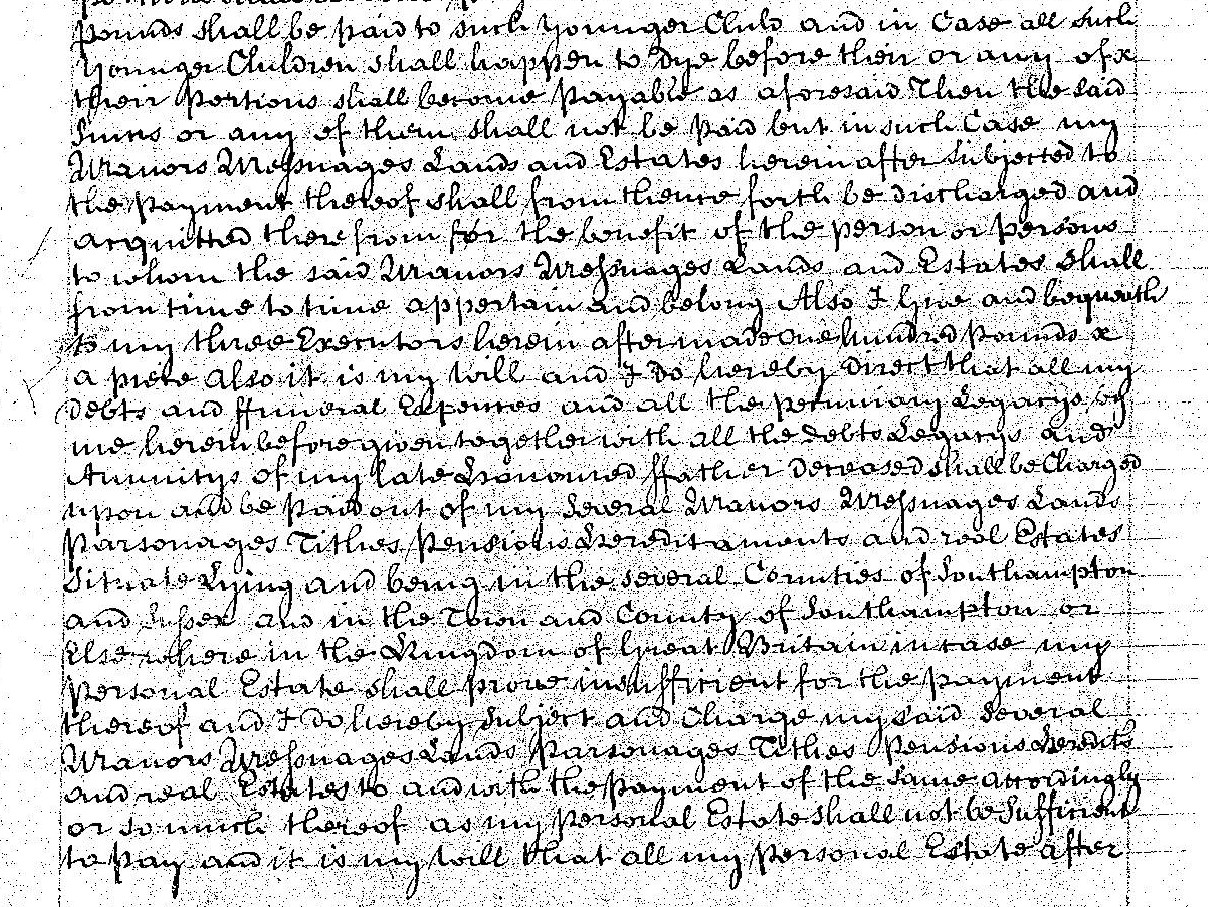 pounds shall be paid to such younger Child and in Case all such
younger Children shall happen to dye before their or any of x
their portions shall become payable as aforesaid Then the said
Sums or any of them shall not be paid but in such Case my
Manors Messuages Lands and Estates herein after Subjected to
the payment thereof shall from thence forth be discharged and
acquitted therefrom for the benefit of the person or persons
to whom the said Manors Messuages Lands and Estates Shall
from time to time appertain and belong Also I Give and bequeath
to my three Executors herein after made One hundred pounds x
a piece also it is my Will and I do hereby Direct that all my
Debts and ffuneral Expences and all the pecuniary Legacys by
me herein before given together with all the debts Legacys and
Annuitys of my late Honoured ffather deceased shall be Charged
upon and be paid out of my Several Manors Messuages Lands
Parsonages Tithes Pensions Hereditaments and real Estates
Situate Lying and being in the several Counties of Southampton
and Sussex and in the Town and County of Southampton or
Elsewhere in the Kingdom of Great Britain in case my
personal Estate shall prove insufficient for the payment
thereof and I do hereby Subject and Charge my said Several
Manors Messuages Lands Parsonages Tithes Pensions Heredits
and real Estates to and with the payment of the same accordingly
or so much thereof as my personal Estate shall not be Sufficient
to pay and it is my Will that all my personal Estate after